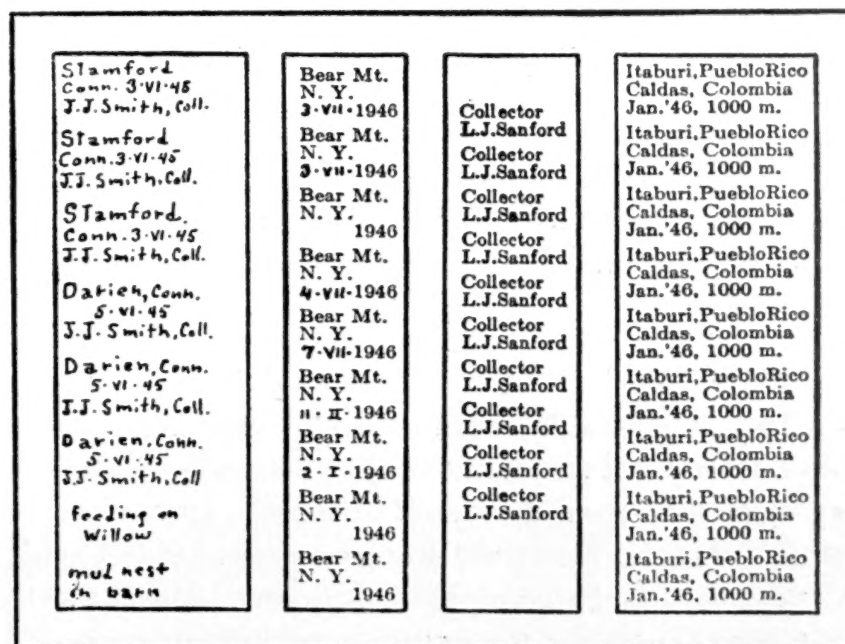 Stamford
Conn. 3·VI·45
J.J. Smith, Coll.
Stamford
Conn. 3·VI·45
J.J. Smith, Coll.
Stamford.
Conn. 3·VI·45
J.J. Smith, Coll.
Darien, Conn.
5·VI·45
J.J. Smith, Coll.
Darien, Conn.
5·VI·45
J.J. Smith, Coll.
Darien, Conn.
5·VI·45
J.J. Smith, Coll
feeding on
Willow
mud nest
in barn
Bear Mt.
N. Y.
3·VII·1946
Bear Mt.
N. Y.
3·VII·1946
Bear Mt.
N. Y.
1946
Bear Mt.
N. Y.
4·VII·1946
Bear Mt.
N. Y.
7·VII·1946
Bear Mt.
N. Y.
11·II·1946
Bear Mt.
N. Y.
2·I·1946
Bear Mt.
N. Y.
1946
Bear Mt.
N. Y.
1946
Collector
L.J.Sanford
Collector
L.J.Sanford
Collector
L.J.Sanford
Collector
L.J.Sanford
Collector
L.J.Sanford
Collector
L.J.Sanford
Collector
L.J.Sanford
Collector
L.J.Sanford
Collector
L.J.Sanford
Collector
L.J.Sanford
Itaburi,PuebloRico
Caldas, Colombia
Jan.'46, 1000 m.
Itaburi,PuebloRico
Caldas, Colombia
Jan.'46, 1000 m.
Itaburi,PuebloRico
Caldas, Colombia
Jan.'46, 1000 m.
Itaburi,PuebloRico
Caldas, Colombia
Jan.'46, 1000 m.
Itaburi,PuebloRico
Caldas, Colombia
Jan.'46, 1000 m.
Itaburi,PuebloRico
Caldas, Colombia
Jan.'46, 1000 m.
Itaburi,PuebloRico
Caldas, Colombia
Jan.'46, 1000 m.
Itaburi,PuebloRico
Caldas, Colombia
Jan.'46, 1000 m.
Itaburi,PuebloRico
Caldas, Colombia
Jan.'46, 1000 m.